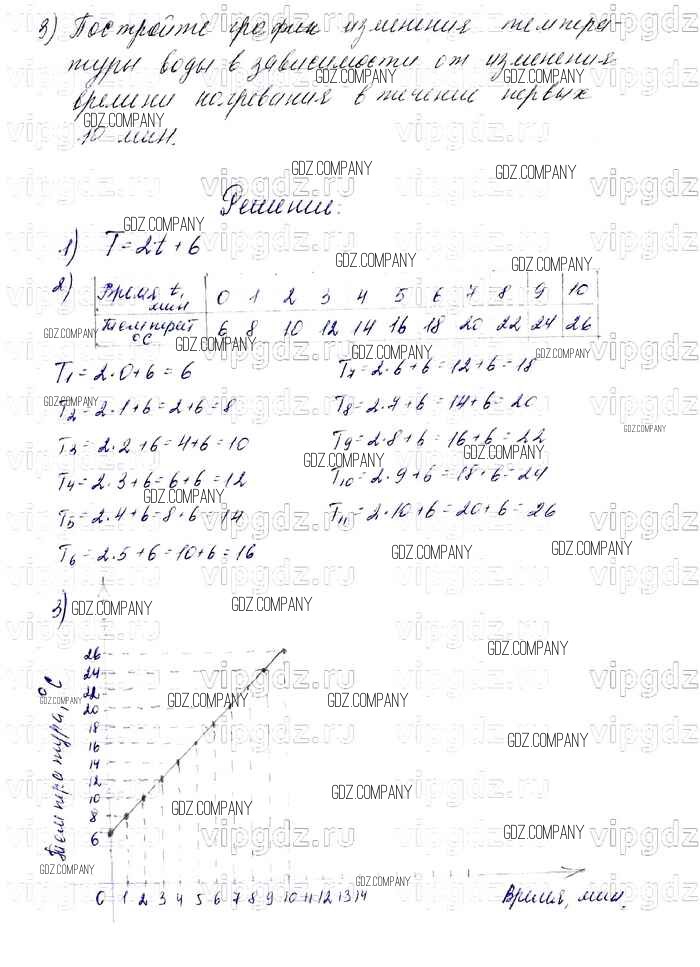 3) Постройте график изменения темпера-
туры воды в зависимости от изменения
времени нагревания в течение первых
10 мин.
Решение:
1) T = 2t + 6
2) Время t, мин 0 1 2 3 4 5 6 7 8 9 10
Температ °C 6 8 10 12 14 16 18 20 22 24 26
T1 = 2·0+6 = 6
T2 = 2·1+6 = 2+6 = 8
T3 = 2·2+6 = 4+6 = 10
T4 = 2·3+6 = 6+6 = 12
T5 = 2·4+6 = 8+6 = 14
T6 = 2·5+6 = 10+6 = 16
T7 = 2·6+6 = 12+6 = 18
T8 = 2·7+6 = 14+6 = 20
T9 = 2·8+6 = 16+6 = 22
T10 = 2·9+6 = 18+6 = 24
T11 = 2·10+6 = 20+6 = 26
3)
Температура, °C
26
24
22
20
18
16
14
12
10
8
6
0 1 2 3 4 5 6 7 8 9 10 11 12 13 14
Время, мин.
GDZ.COMPANY
vipgdz.ru